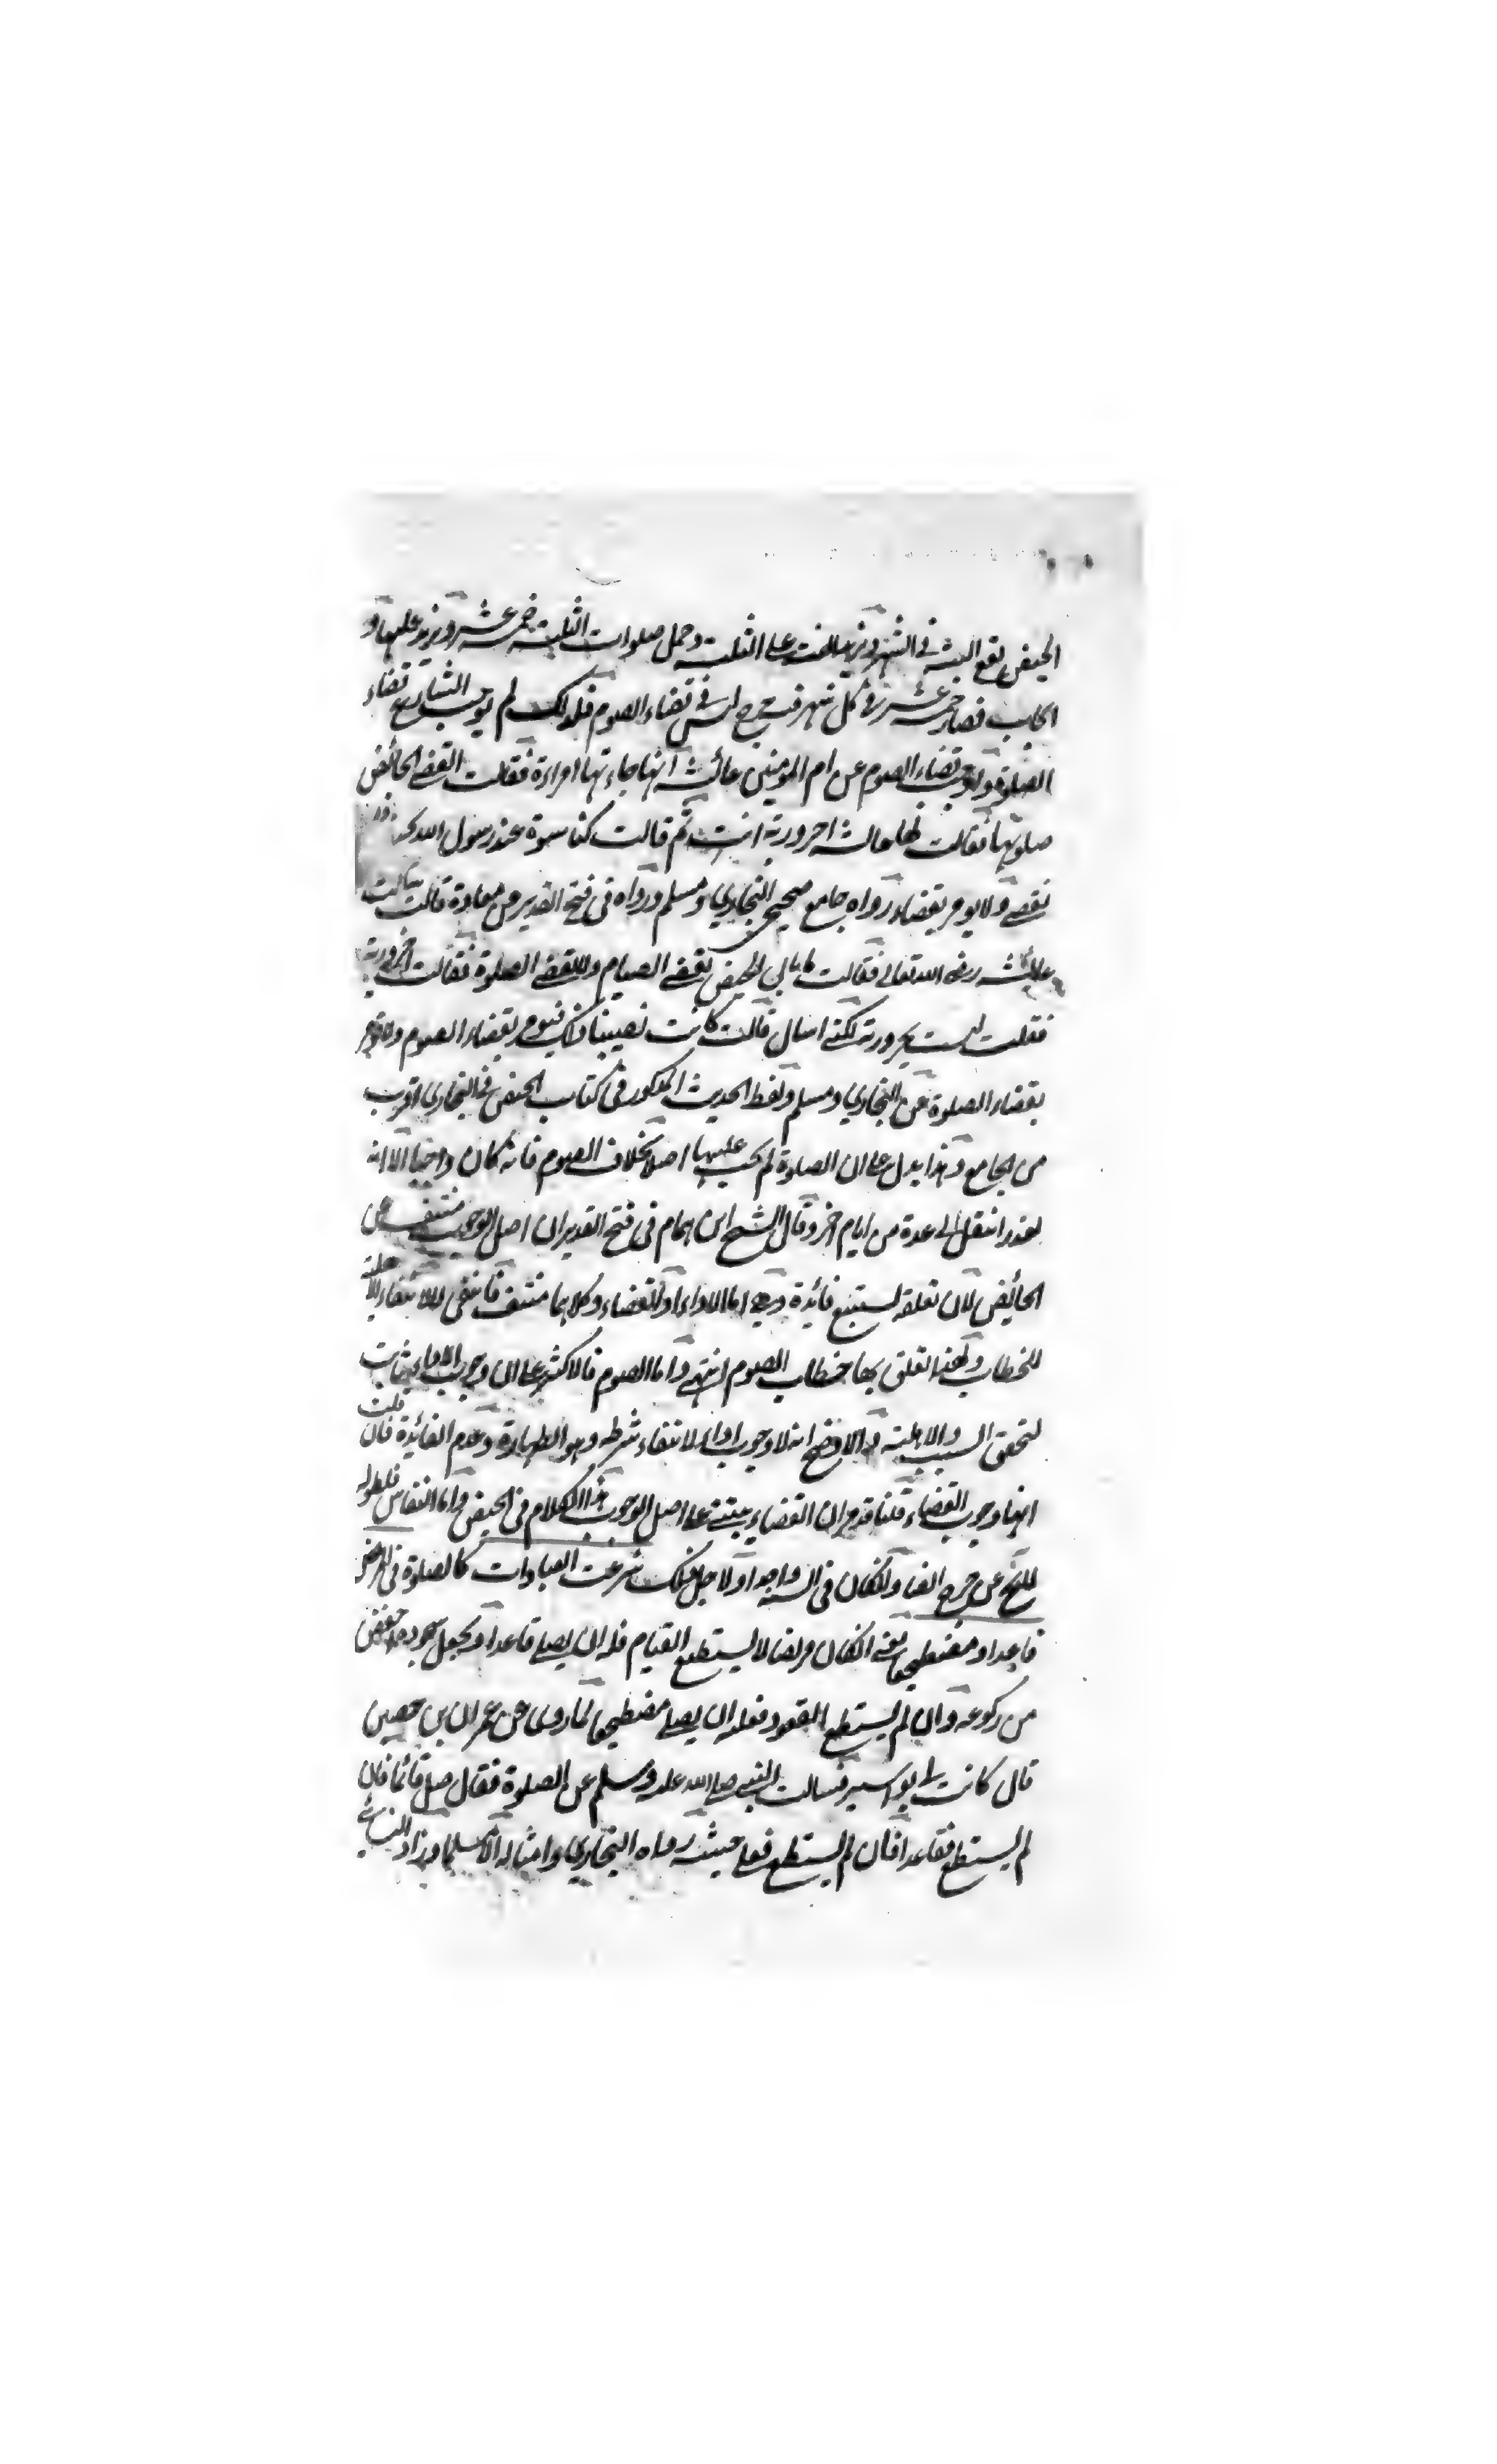 الحيض يقع البتة في الشهر على الثلثة وحمل صلوات الثلثة خمسة عشر ويزيد عليها في
الحاب فصار خمسة عشر في كل شهر حرج ليس في قضاء الصوم فلذلك لم يوجب الشارع قضاء
الصلوة واوجب قضاء الصوم عن ام المومنين عائشة انها جاءتها امراءة فقالت القضي الحائض
صلوتها فقالت لها عائشة احرورية انت ثم قالت كنا نسوة عند رسول الله
نقضي ولا يومر بقضاء رواه جامع صحيح البخاري ومسلم ورواه في فتح القدير عن معاذة قالت سالت
عائشة رضي الله تعالى فقالت ما بال الحيض تقضي الصيام ولا تقضي الصلوة فقالت احرورية
فقلت لست بحرورية لكني اسال قالت كانت تصيبنا ذلك فنومر بقضاء الصوم ولا نومر
بقضاء الصلوة عن البخاري ومسلم ولفظ الحديث المذكور في كتاب الحيض في البخاري اقرب
من الجامع وهذا يدل على ان الصلوة لم تجب عليها اصلا بخلاف الصوم فانه كان واجبا الا انه
لعذر انتقل الى عدة من ايام اخر وقال الشيخ ابن همام في فتح القدير ان اصل الوجوب منتف عن
الحائض لان تعلقه يستتبع فائدة وهي اما الاداء او القضاء وكلاهما منتف فانتفى لا لانتفاء الاهلية
للخطاب ولهذا تعلق بها خطاب الصوم انتهى واما الصوم فالاكثر على ان وجوب الاداء ثابت
لتحقق السبب والاهلية والاوضح انه لا وجوب اداء لانتفاء شرطه وهو الطهارة وعدم الفائدة فان قلت
انها وجوب القضاء قلنا قد مر ان القضاء يبتني على اصل الوجوب هذا الكلام في الحيض واما النفاس فلطوله
عن حرج ايضا ولو كان في السنة واحدا ولاجل ذلك شرعت العبادات كالصلوة في المرض
قاعدا ومضطجعا يعني ان كان مريضا لا يستطيع القيام فله ان يصلي قاعدا ويجعل سجوده اخفض
من ركوعه وان لم يستطع القعود فعليه ان يصلي مضطجعا لما روى عن عمران بن حصين
قال كانت لي بواسير فسالت النبي صلى الله عليه وسلم عن الصلوة فقال صل قائما فان
لم يستطع فقاعدا فان لم يستطع فعلى جنبه رواه البخاري وامثاله الا مسلما وزاد النسائي